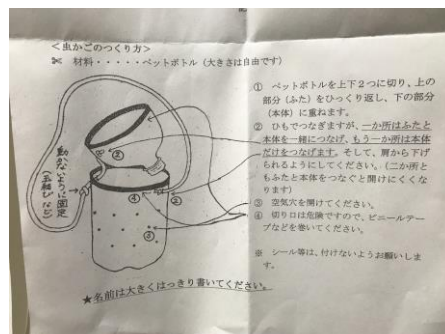 ＜虫かごのつくり方＞
✂ 材料・・・・・ペットボトル（大きさは自由です）
① ペットボトルを上下２つに切り、上の
部分（ふた）をひっくり返し、下の部分
（本体）に重ねます。
② ひもでつなぎますが、一か所はふたと
本体を一緒につなげ、もう一か所は本体
だけをつなげます。そして、肩から下げ
られるようにしてください。（二か所と
もふたと本体をつなぐと開けにくくな
ります）
③ 空気穴を開けてください。
④ 切り口は危険ですので、ビニールテー
プなどを巻いてください。
※ シール等は、付けないようお願いしま
す。
動かないように固定
（玉結びなど）
②
④
②
③
★名前は大きくはっきり書いてください。